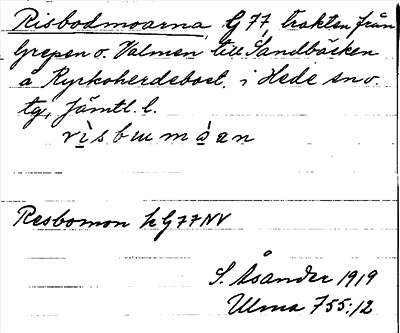 Risbodmoarna, G 77, trakten från
Grepen o. Valmen till Sandbäcken
å Kyrkoherdebost. i Hede sn o.
tg, Jämtl. l.
rìsbɯmmòan
Resbomon k G 77 NV
S. Åsander 1919
Ulma 755:12